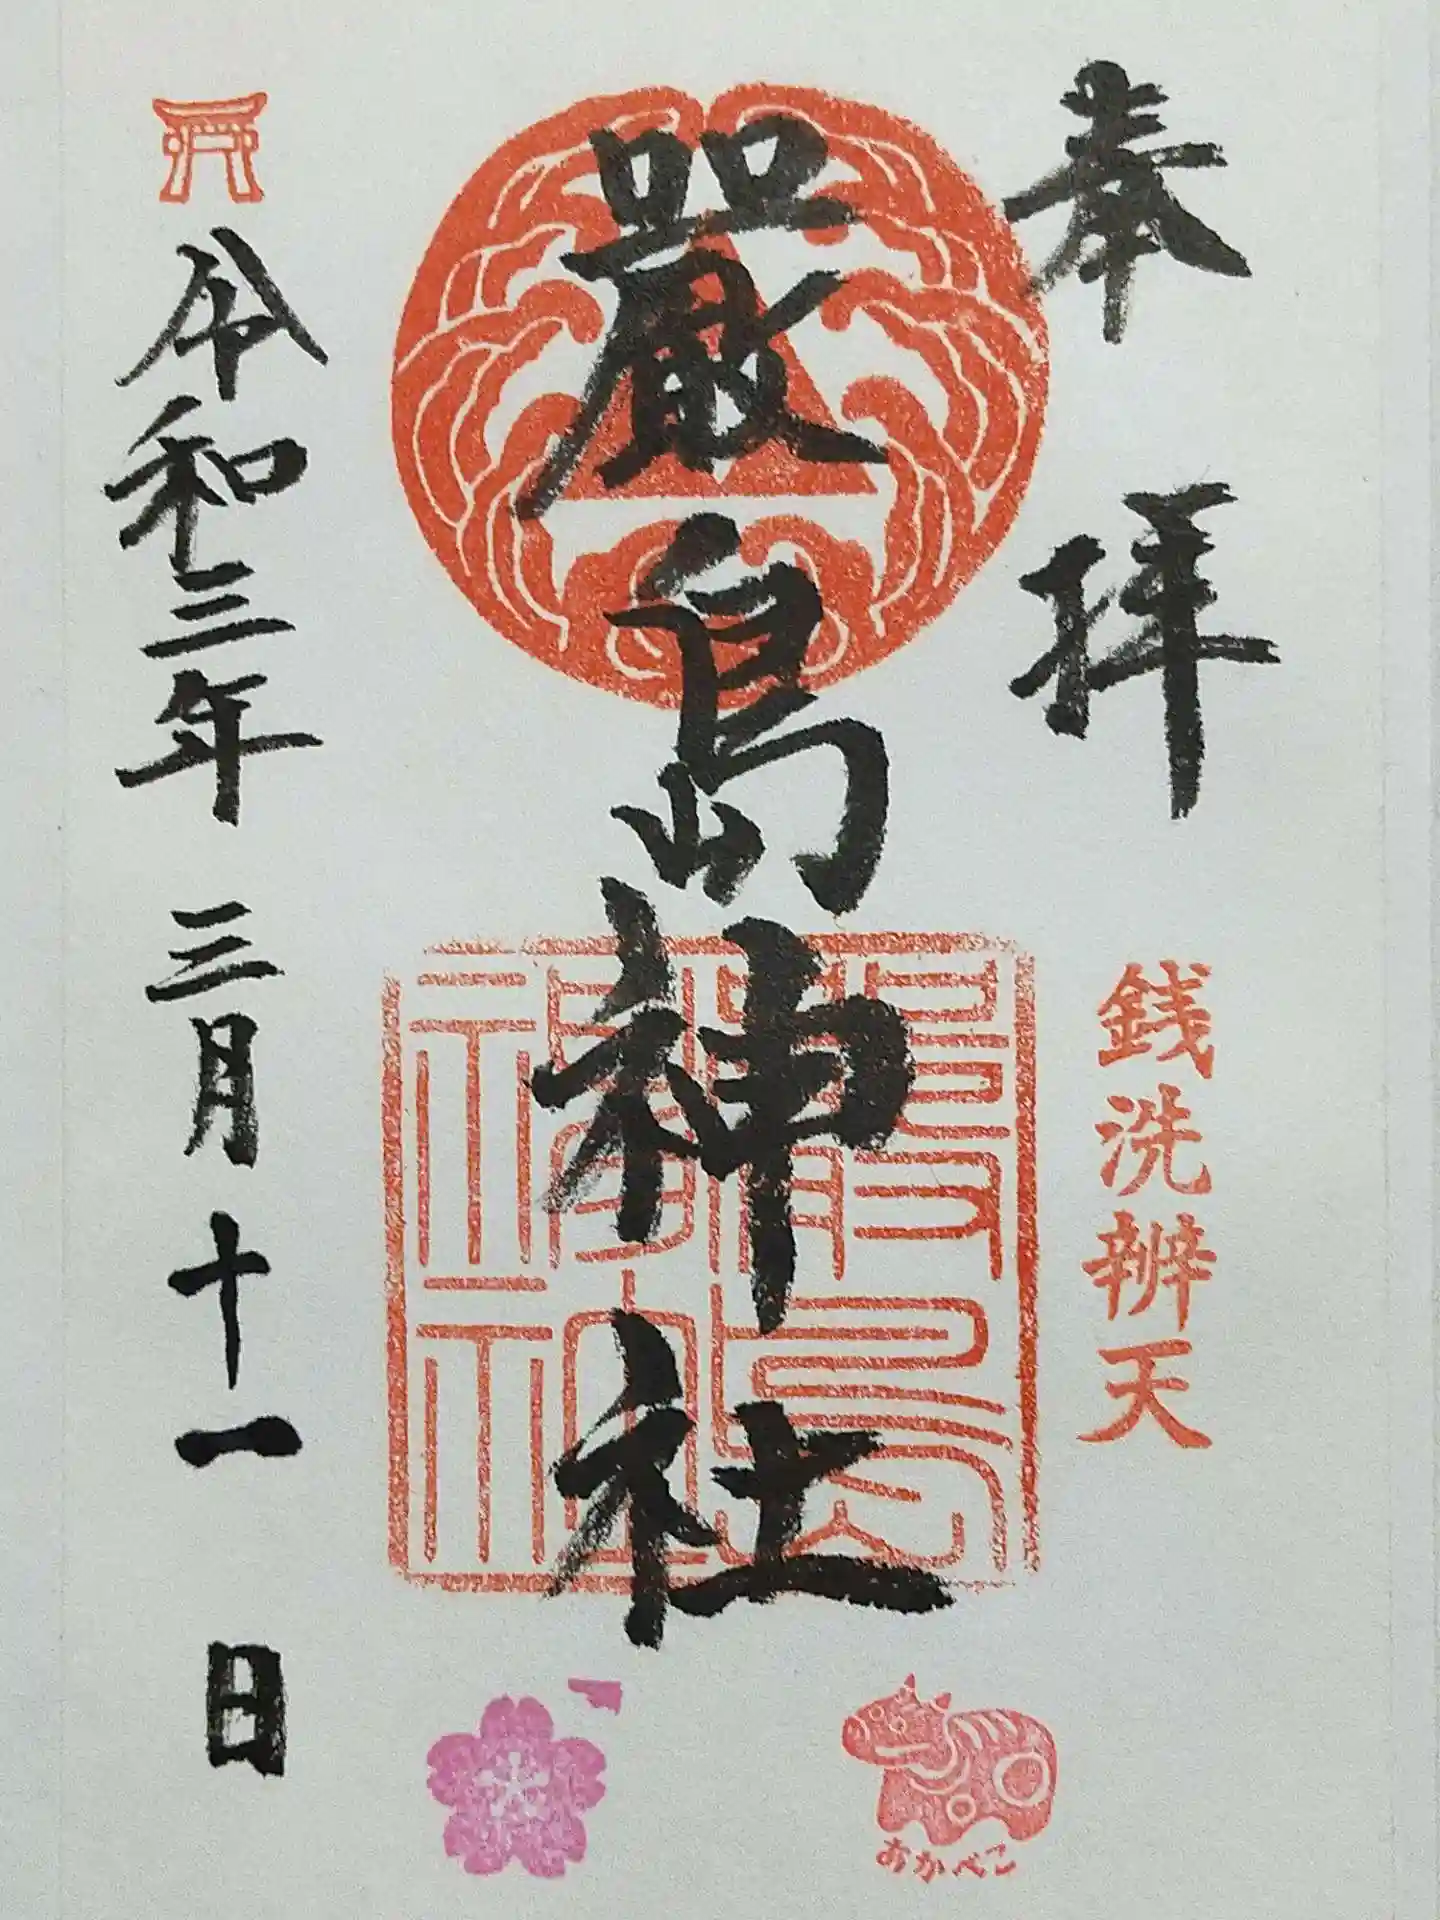 奉拝
銭洗辨天
嚴島神社
嚴島神社
令和三年三月十一日
あかべこ